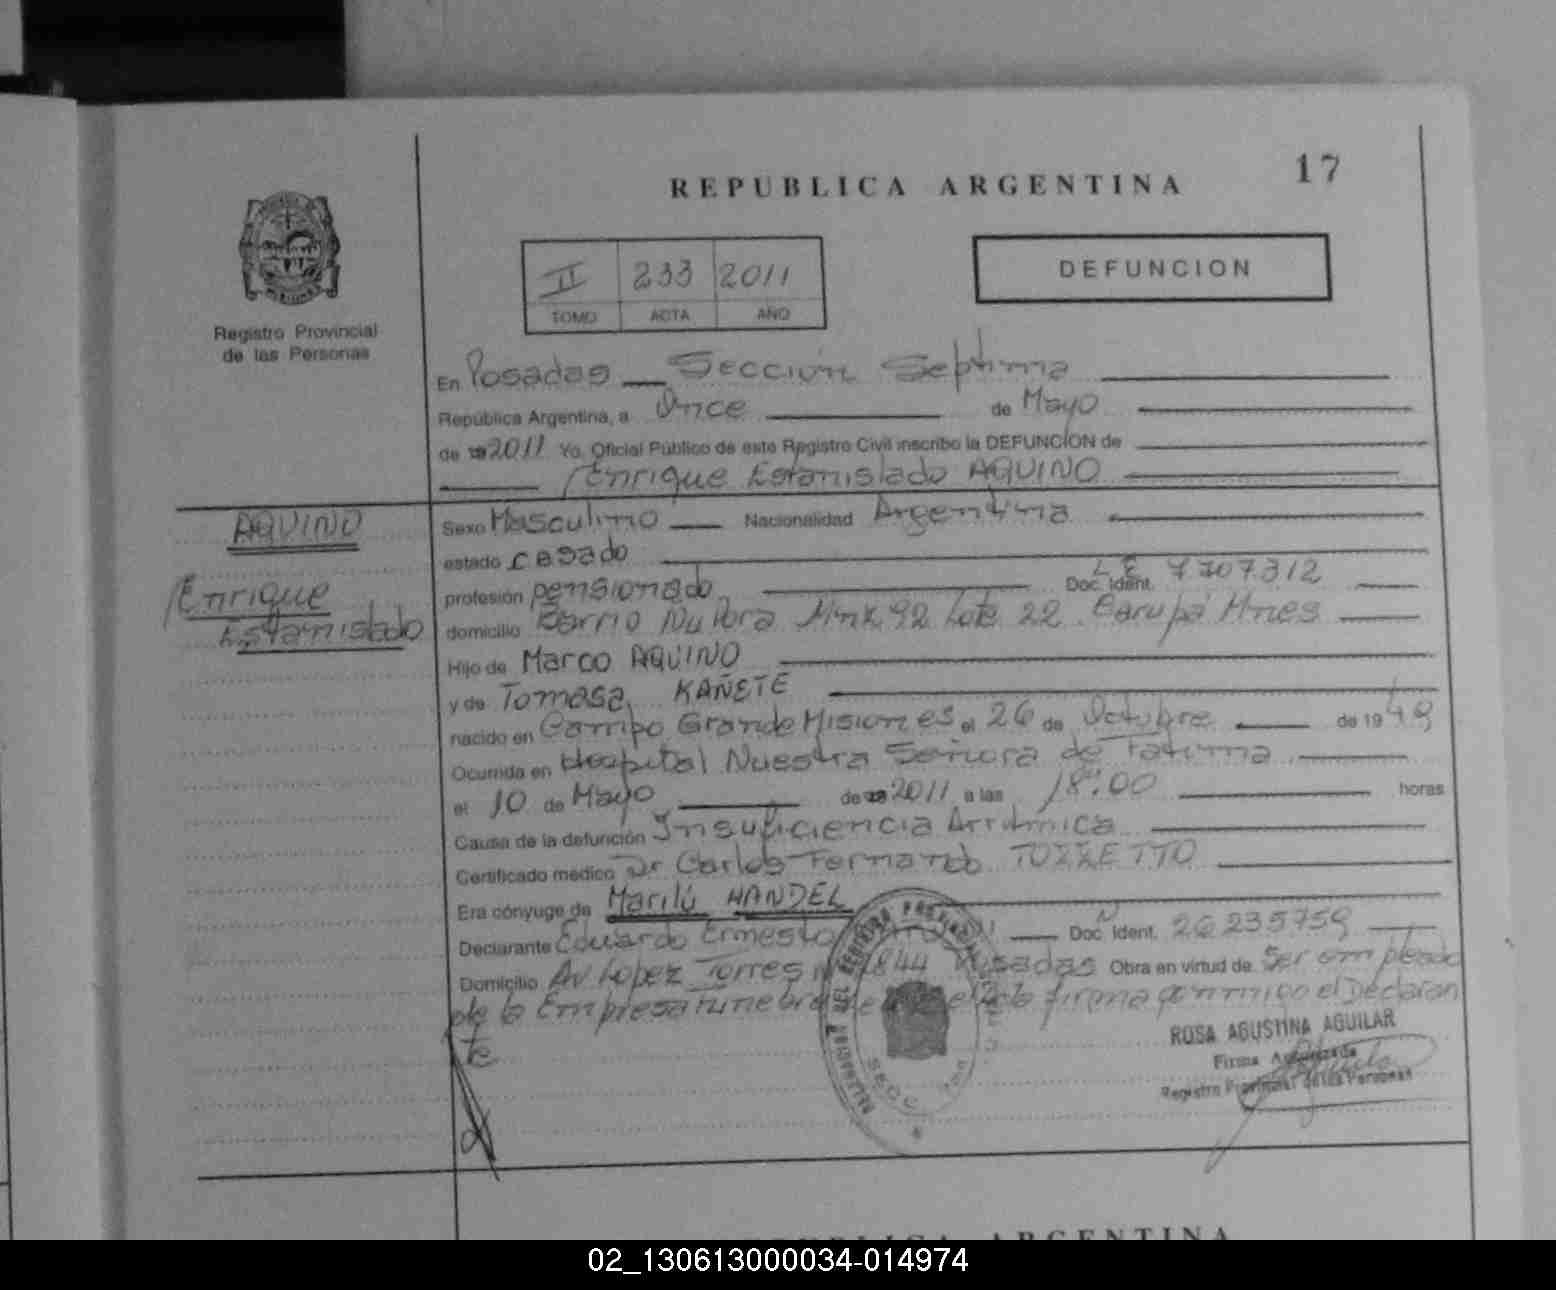 17
REPUBLICA ARGENTINA
DEFUNCION
II 233 2011
TOMO ACTA AÑO
Registro Provincial
de las Personas
En Posadas Sección Septima
República Argentina, a Once de Mayo
de 2011 Yo, Oficial Público de este Registro Civil inscribo la DEFUNCION de
Enrique Estanislado AQUINO
AQUINO
Enrique
Estanislado
Sexo Masculino Nacionalidad Argentina
estado casado
profesión pensionado Doc. Ident. L E 7707312
domicilio Barrio Ñu Pora Mnk 92 Lote 22. Garupá Mnes
Hijo de Marco AQUINO
y de Tomasa KAÑETE
nacido en Campo Grande Misiones el 26 de Octubre de 1949
Ocurrida en Hospital Nuestra Señora de Fatima
el 10 de Mayo de 2011 a las 18:00 horas
Causa de la defunción Insuficiencia Arritmica
Certificado médico Dr Carlos Fernando
Era cónyuge de Marilú HANDEL
Declarante Eduardo Ernesto Doc. Ident. 26235759
Domicilio Av Lopez Torres 1844 Posadas Obra en virtud de Ser empleado
de la Empresa funebre firma conmigo el Declaran
te
ROSA AGUSTINA AGUILAR
Firma Autorizada
Registro Provincial de las Personas
REPUBLICA ARGENTINA
02_130613000034-014974